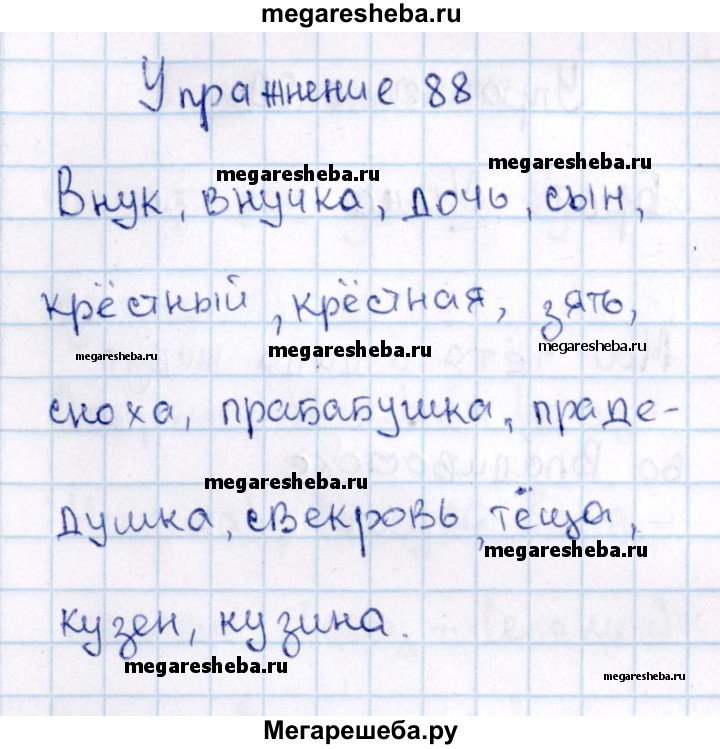 megaresheba.ru
Упражнение 88
megaresheba.ru
megaresheba.ru
Внук, внучка, дочь, сын,
крёстный, крёстная, зять,
megaresheba.ru
megaresheba.ru
megaresheba.ru
сноха, прабабушка, праде-
megaresheba.ru
душка, свекровь, тёща,
megaresheba.ru
кузен, кузина.
megaresheba.ru
megaresheba.ru
Мегарешеба.ру